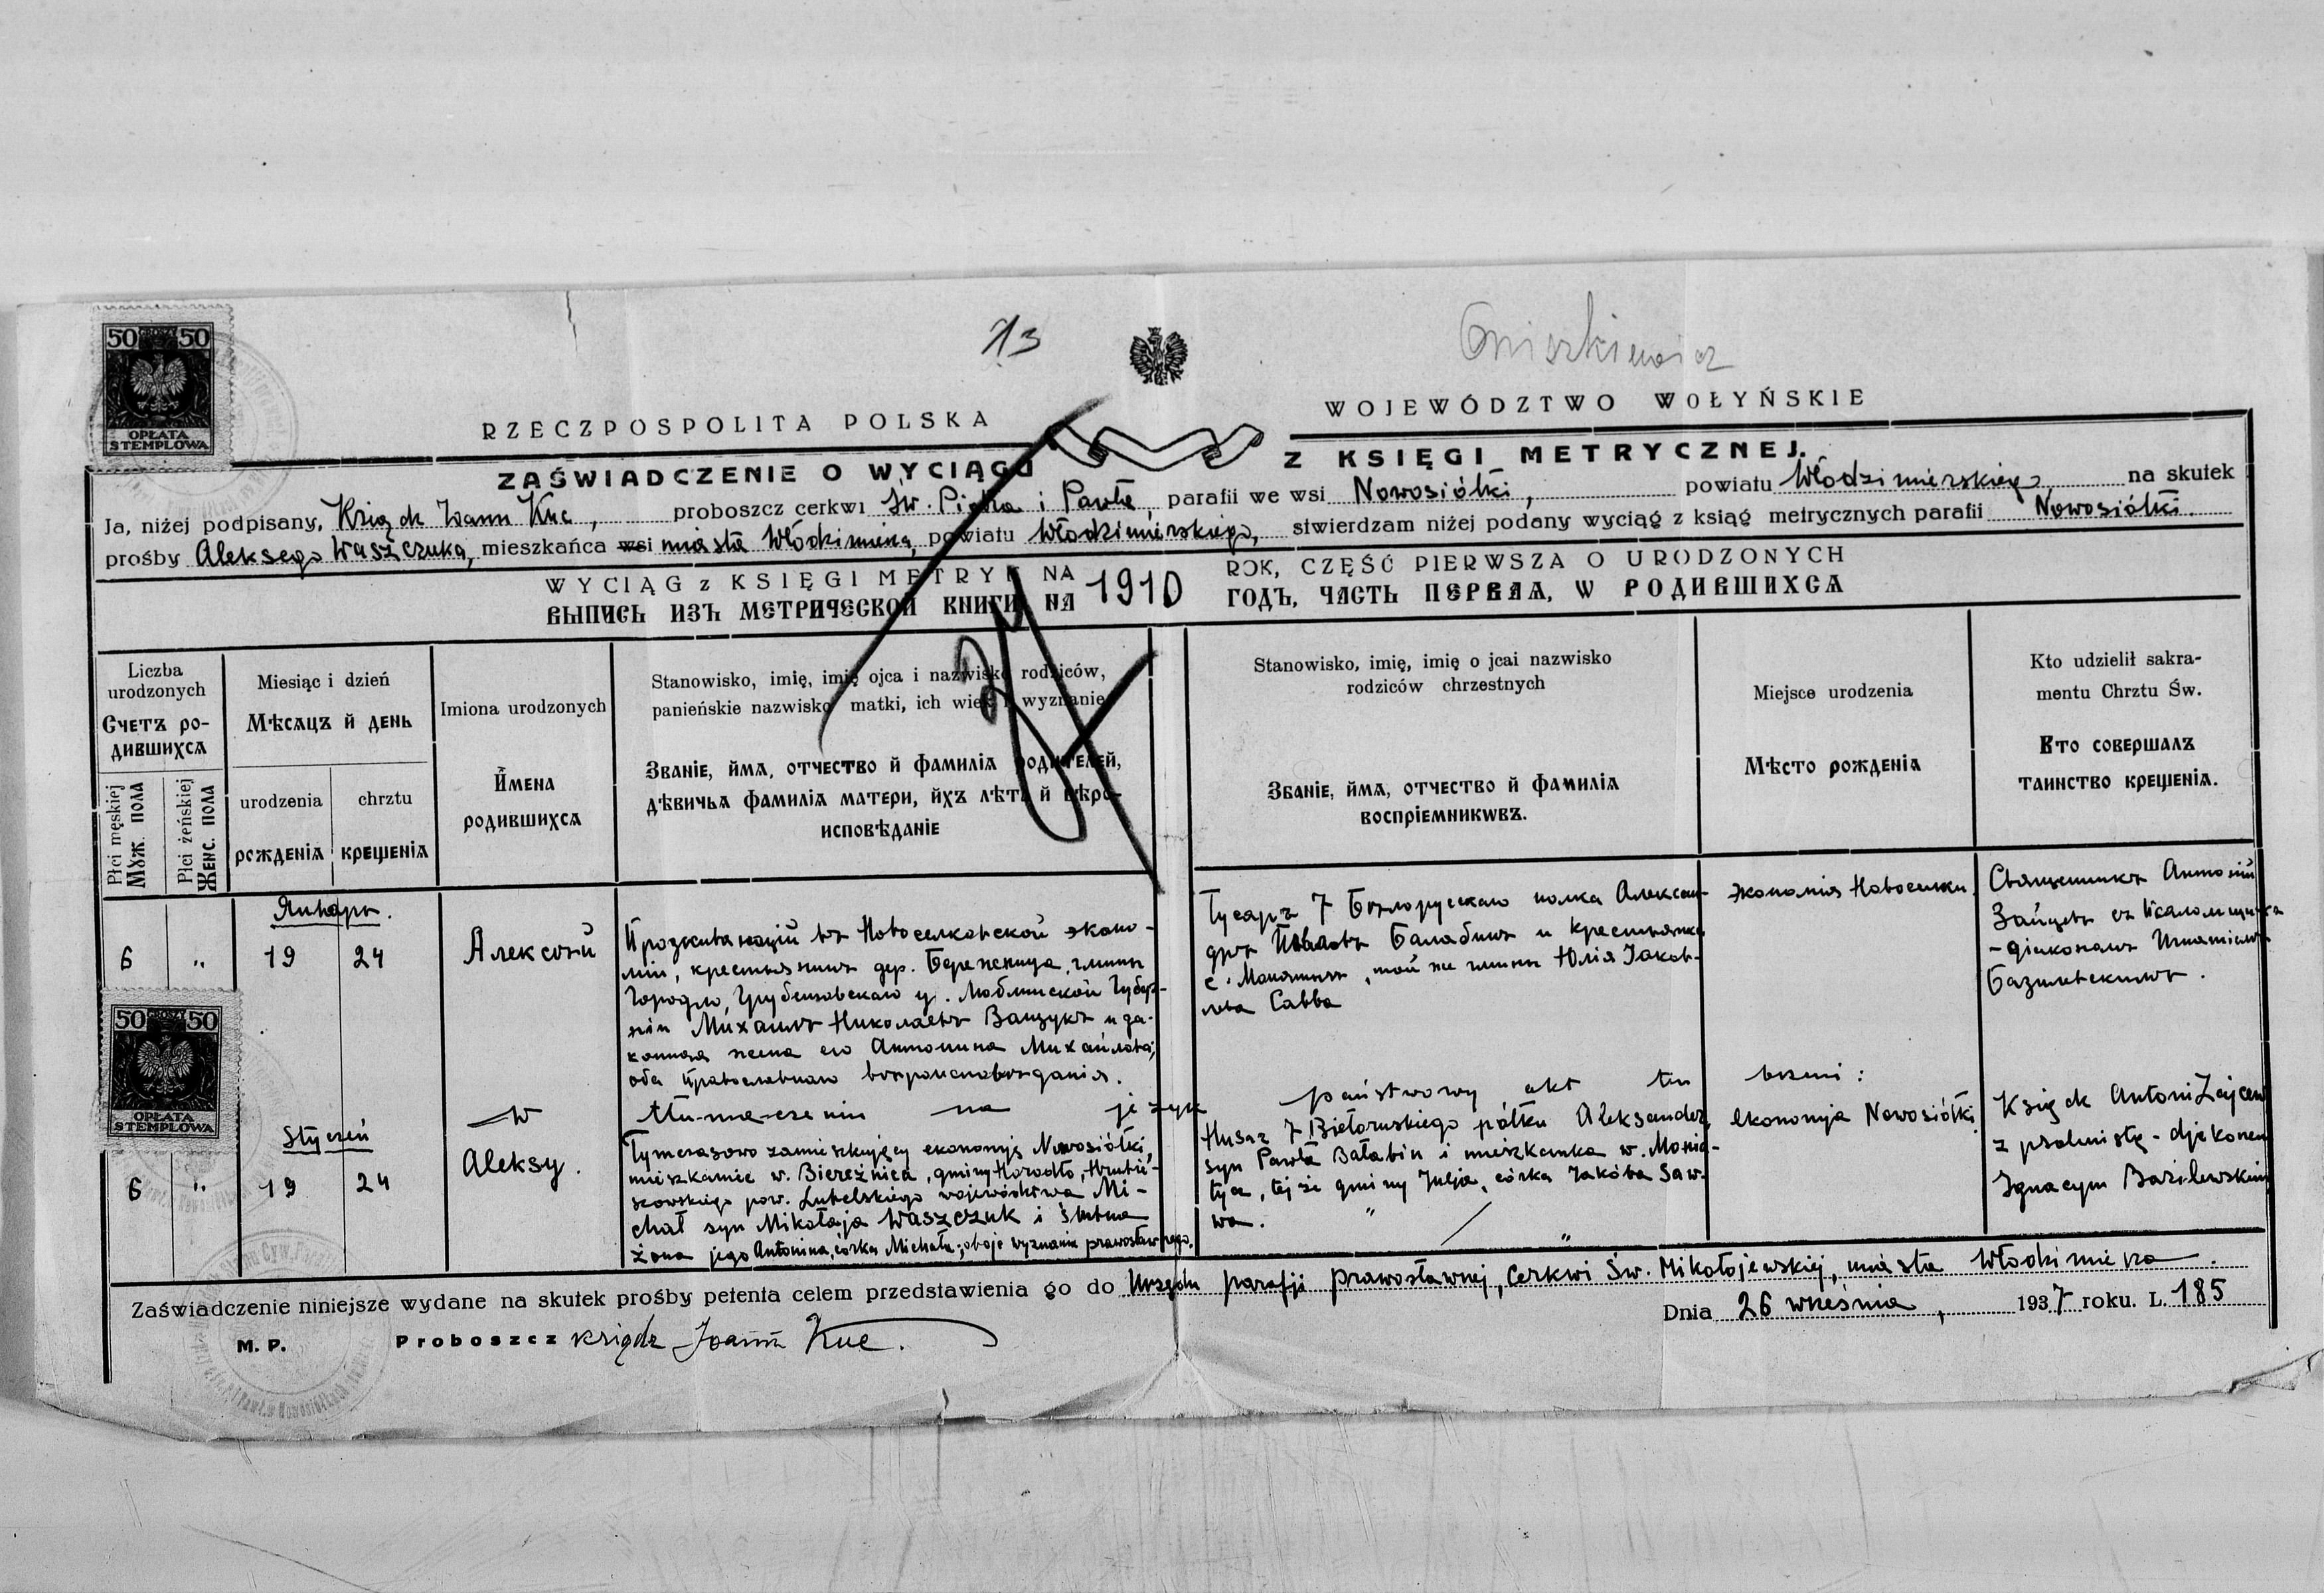 50 GROSZY 50
OPŁATA
STEMPLOWA
13
RZECZPOSPOLITA POLSKA
WOJEWÓDZTWO WOŁYŃSKIE
ZAŚWIADCZENIE O WYCIĄGU Z KSIĘGI METRYCZNEJ.
Ja, niżej podpisany, Ksiądz Joann Kuc, proboszcz cerkwi Św. Piotra i Pawła, parafii we wsi Nowosiółki, powiatu Włodzimierskiego na skutek
prośby Aleksego Waszczuka, mieszkańca wsi miasta Włodzimierza, powiatu Włodzimierskiego, stwierdzam niżej podany wyciąg z ksiąg metrycznych parafii Nowosiółki.
WYCIĄG z KSIĘGI METRYK NA 1910 ROK, CZĘŚĆ PIERWSZA O URODZONYCH
ВЫПИСЬ ИЗЪ МЕТРИЧЕСКОЙ КНИГИ НА ГОДЪ, ЧАСТЬ ПЕРВАЯ, Ѡ РОДИВШИХСѦ
Liczba
urodzonych
Счетъ ро-
дившихсѧ
Płci męskiej
Мꙋж. пола
Płci żeńskiej
Женс. пола
Miesiąc i dzień
Мѣсѧцъ й день
urodzenia
рожденіѧ
chrztu
крещеніѧ
Imiona urodzonych
Имена
родившихсѧ
Stanowisko, imię, imię ojca i nazwisko rodziców,
panieńskie nazwisko matki, ich wiek i wyznanie
Званіе, ймѧ, отчество й фамиліѧ родителей,
дѣвичьѧ фамиліѧ матери, йхъ лѣта й вѣро-
исповѣданіе
Stanowisko, imię, imię o jcai nazwisko
rodziców chrzestnych
Званіе, ймѧ, отчество й фамиліѧ
воспріемникѡвъ.
Miejsce urodzenia
Мѣсто рожденіѧ
Kto udzielił sakra-
mentu Chrztu Św.
Кто совершалъ
таинство крещеніѧ.
Январь.
6 „ 19 24
Алексѣй
Проживающій въ Новоселковской эконо-
міи, крестьянинъ дер. Береженица, гмины
Городло, Грубешовскаго у. Люблинской Губер-
ніи Михаилъ Николаевъ Ващукъ и за-
конная жена его Антонина Михайлова,
оба православнаго вѣроисповѣданія.
Гусаръ 7 Бѣлорусскаго полка Алексан-
дръ Павловъ Балабинъ и крестьянка
с. Монятычъ, той же гмины Юлія Іаков-
лева Савва
экономія Новоселки.
Священникъ Антоній
Зайцевъ съ псаломщика
-діакономъ Игнатіемъ
Базилевскимъ.
w tłu-ma-cze niu na język państwowy akt ten brzmi:
50 GROSZY 50
OPŁATA
STEMPLOWA
Styczeń
6 „ 19 24
Aleksy.
Tymczasowo zamieszkujący ekonomję Nowosiółki,
mieszkaniec w. Biereżnica, gminy Horodło, Hrubie-
szowskiego pow. Lubelskiego województwa Mi-
chał syn Mikołaja Waszczuk i ślubna
żona jego Antonina, córka Michała; oboje wyznania prawosławnego.
Husar 7 Białoruskiego półku Aleksander,
syn Pawła Bałabin i mieszkanka w. Monia-
tycz, tej że gminy Julja, córka Jakóba Saw-
wa. „ „
ekonomja Nowosiółki
Ksiądz Antoni Zajcew
z psalmistą - djakonem
Ignacym Bazilewskim
Zaświadczenie niniejsze wydane na skutek prośby petenta celem przedstawienia go do Urzędu parafji prawosławnej, Cerkwi Św. Mikołojewskiej, miasta Włodzimierza.
Dnia 26 września, 1937 roku. L. 185
M. P. Proboszcz ksiądz Joann Kuc.